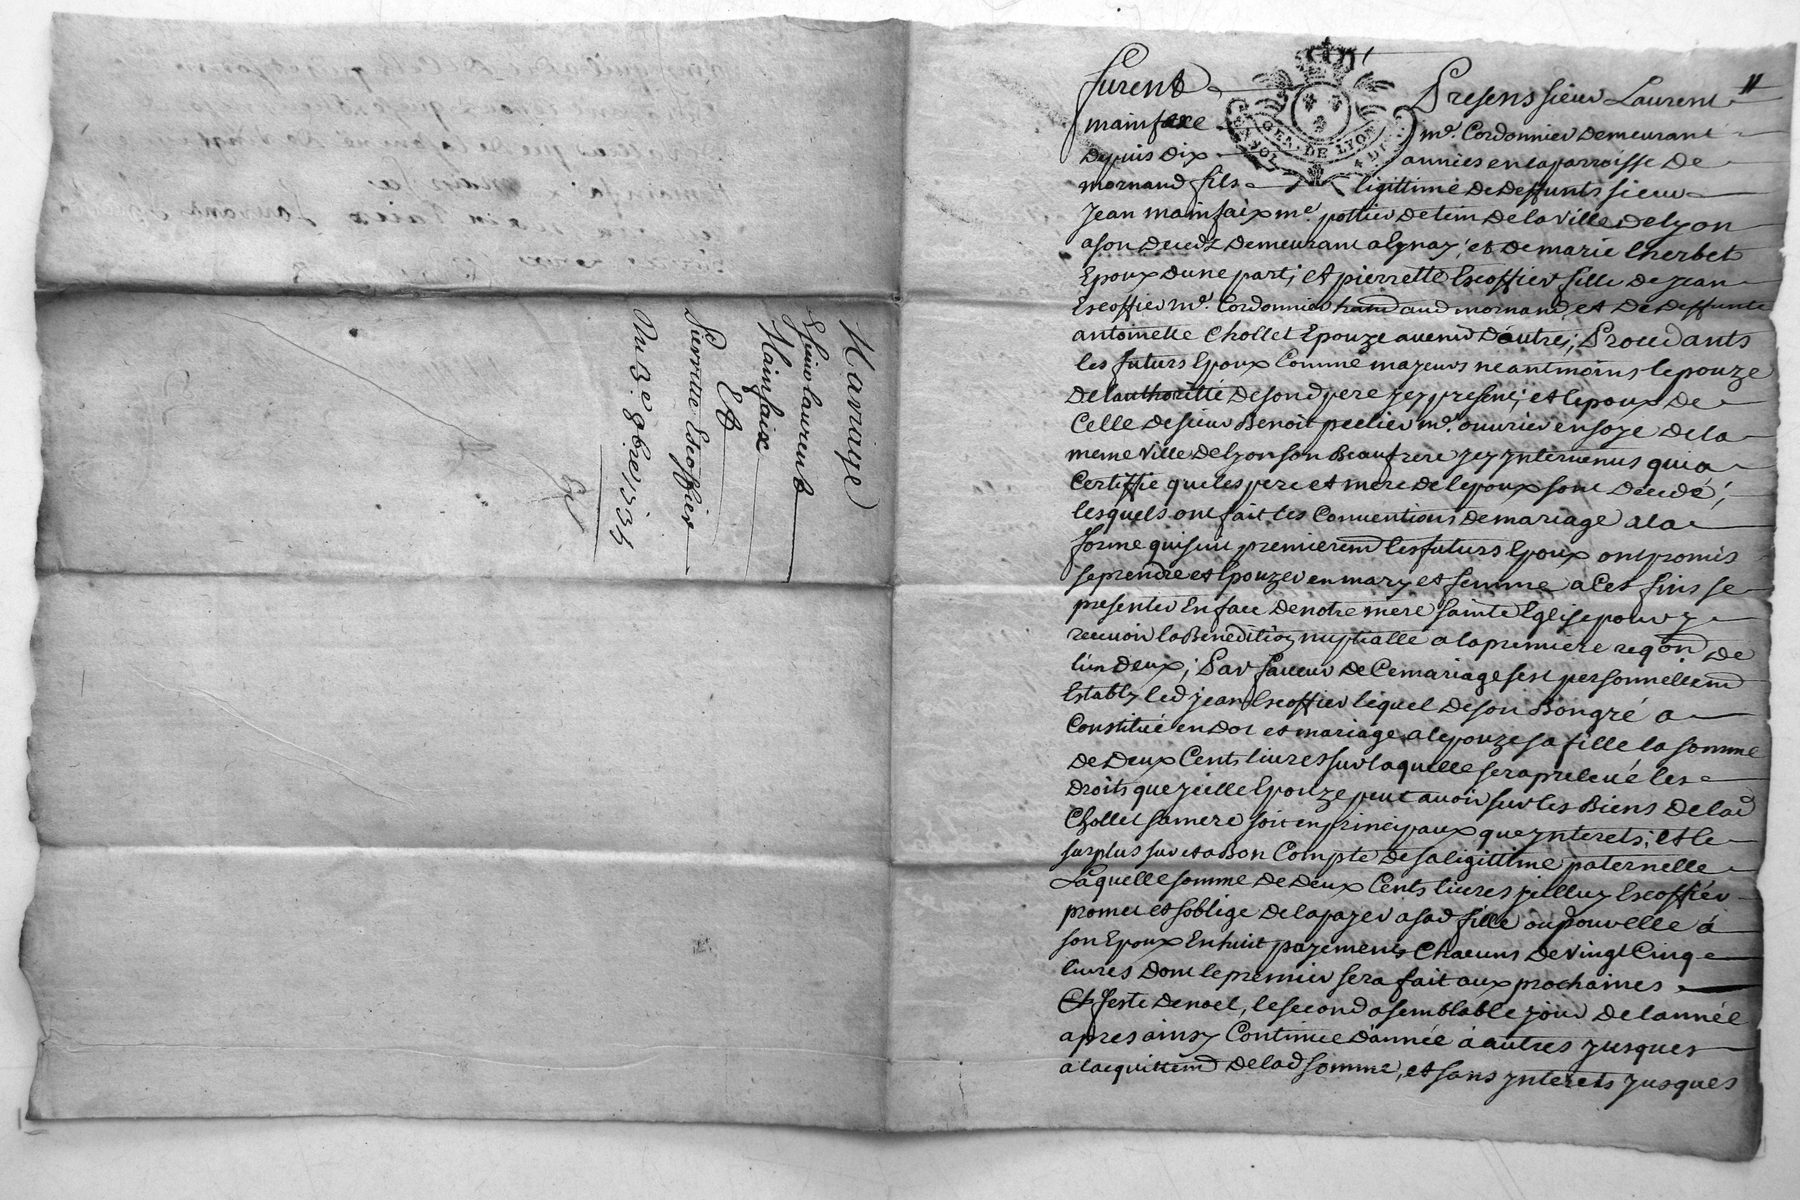 Mariage
E sieur laurent
Mainfaix
Et
Pierrette Escoffier
Du 3e 9bre 1735
furent Presens sieur Laurent
mainfaxe me. Cordonnier demeurant
depuis dix années en laparroisse de
mornand fils ligittime de deffunts sieur
Jean mainfaix me. pottier detein delaville delyon
ason decedz demeurant alynay; et de marie lherbet
Epoux dune part; et pierrette Escoffier fille de jean
Escoffier me. Cordonnier aud mornand, et de deffunte
antoinette Chollet Epouze avenir d'autre; Procedants
les futurs Epoux Comme mayeurs neantmoins lepouze
delauthorité desond pere jcy present; et lepoux de
Celle desieur Benoit peelier me. ouvrier ensoye dela
meme ville delyon son Beaufrere jcy yntervenus qui a
Certiffie que les pere et mere de lepoux sont decedé;
lesquels ont fait les Conventions demariage ala
forme quisuit premieremt lesfuturs Epoux ontpromis
seprendre et Epouzer en mary et femme a Ces fins se
presenter En face denotre mere sainte Eglise pour y
recevoir la Benedition nuptialle a lapremiere reqon de
lun deux; Par faveur de Cemariage sest personnellemt
Estably led jean Escoffier lequel deson Bongré a
Constitué en dot et mariage alepouze sa fille la somme
de deux Cents livres surlaquelle sera prelevé les
droits que jcelle Epouze peut avoir sur les Biens de lad
Chollet samere soit enprincipaux que ynterets; et le
surplus sur et aBon Compte desaligittime paternelle
Laquelle somme de deux Cents livres jcelluy Escoffier
promet et soblige delapayer asad fille oupourelle á
son Epoux En huit payements Chacuns de vingt Cinq
livres dont lepremier sera fait aux prochaines
feste denoel, lesecond asemblable jour delannée
apres ainsy Continue d'année á autres jusques
alacquittemt delad somme, et sans ynterets jusques
GEN. DE LYON